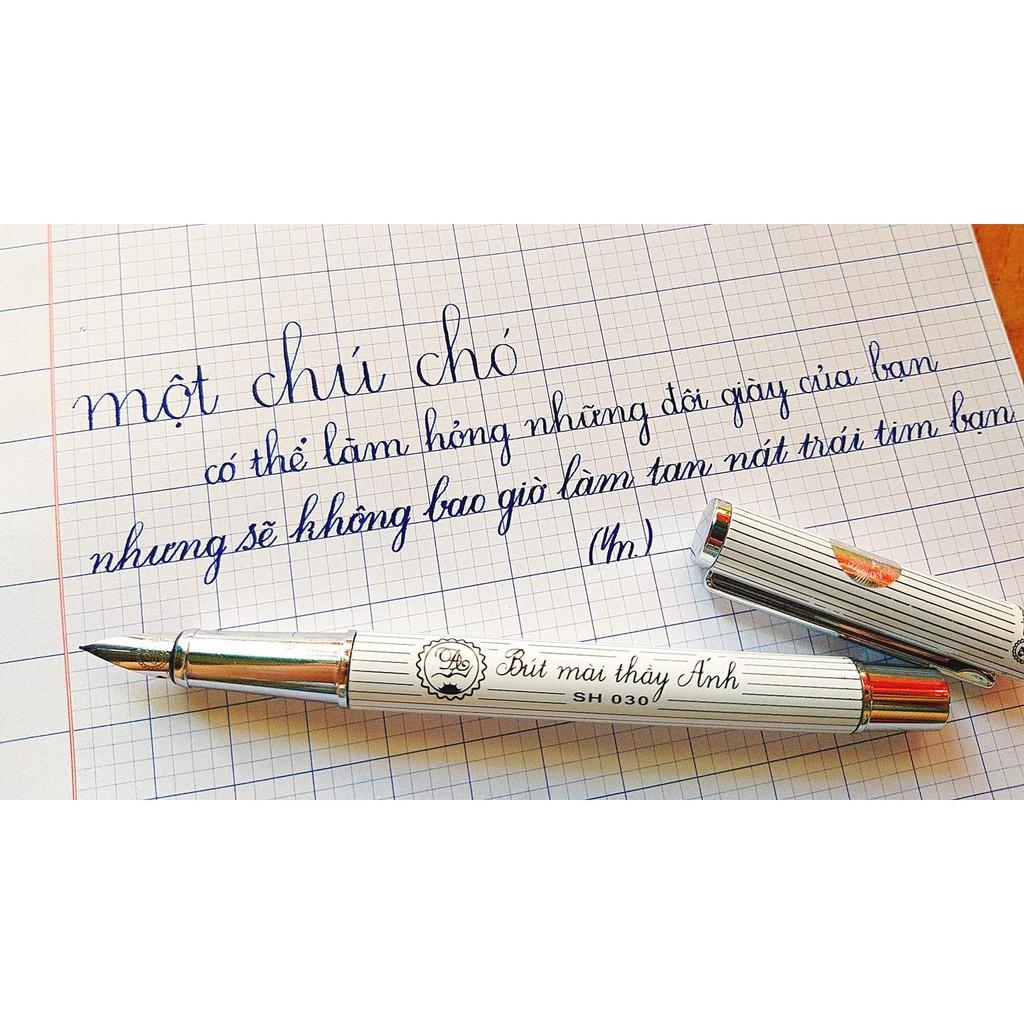 một chú chó
có thể làm hỏng những đôi giày của bạn
nhưng sẽ không bao giờ làm tan nát trái tim bạn
Bút mài thầy Ánh
SH 030